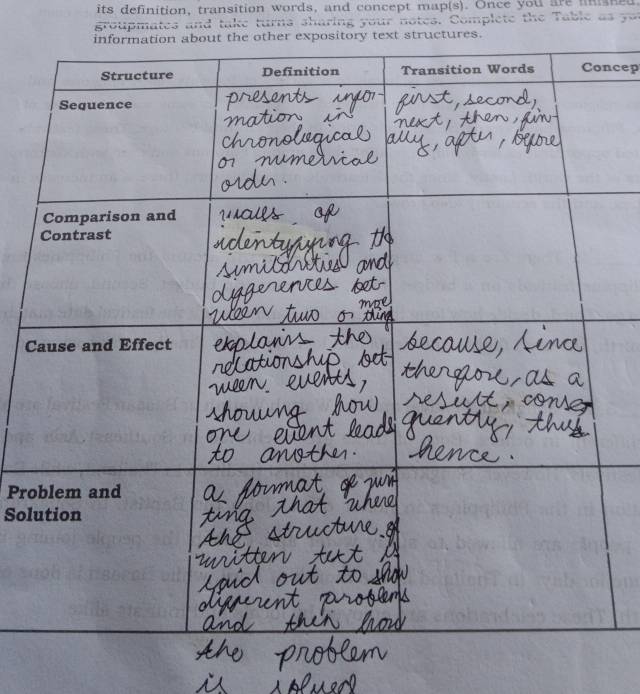 its definition, transition words, and concept map(s). Once you are finished,
groupmates and take turns sharing your notes. Complete the Table as you
information about the other expository text structures.
Structure
Definition
Transition Words
Concep
Sequence
presents infor-
mation in
chronological
or numerical
order.
first, second,
next, then, fin-
ally, after, before
Comparison and
Contrast
of
identifying the
similarities and
differences bet-
ween two or more
thing
Cause and Effect
explains the
relationship bet-
ween events,
showing how
one event leads
to another.
because, since
therefore, as a
result, conse-
quently, thus
hence.
Problem and
Solution
a format of wri
ting that where
the structure of
written text is
laid out to show
different problems
and then how
the problem
is solved